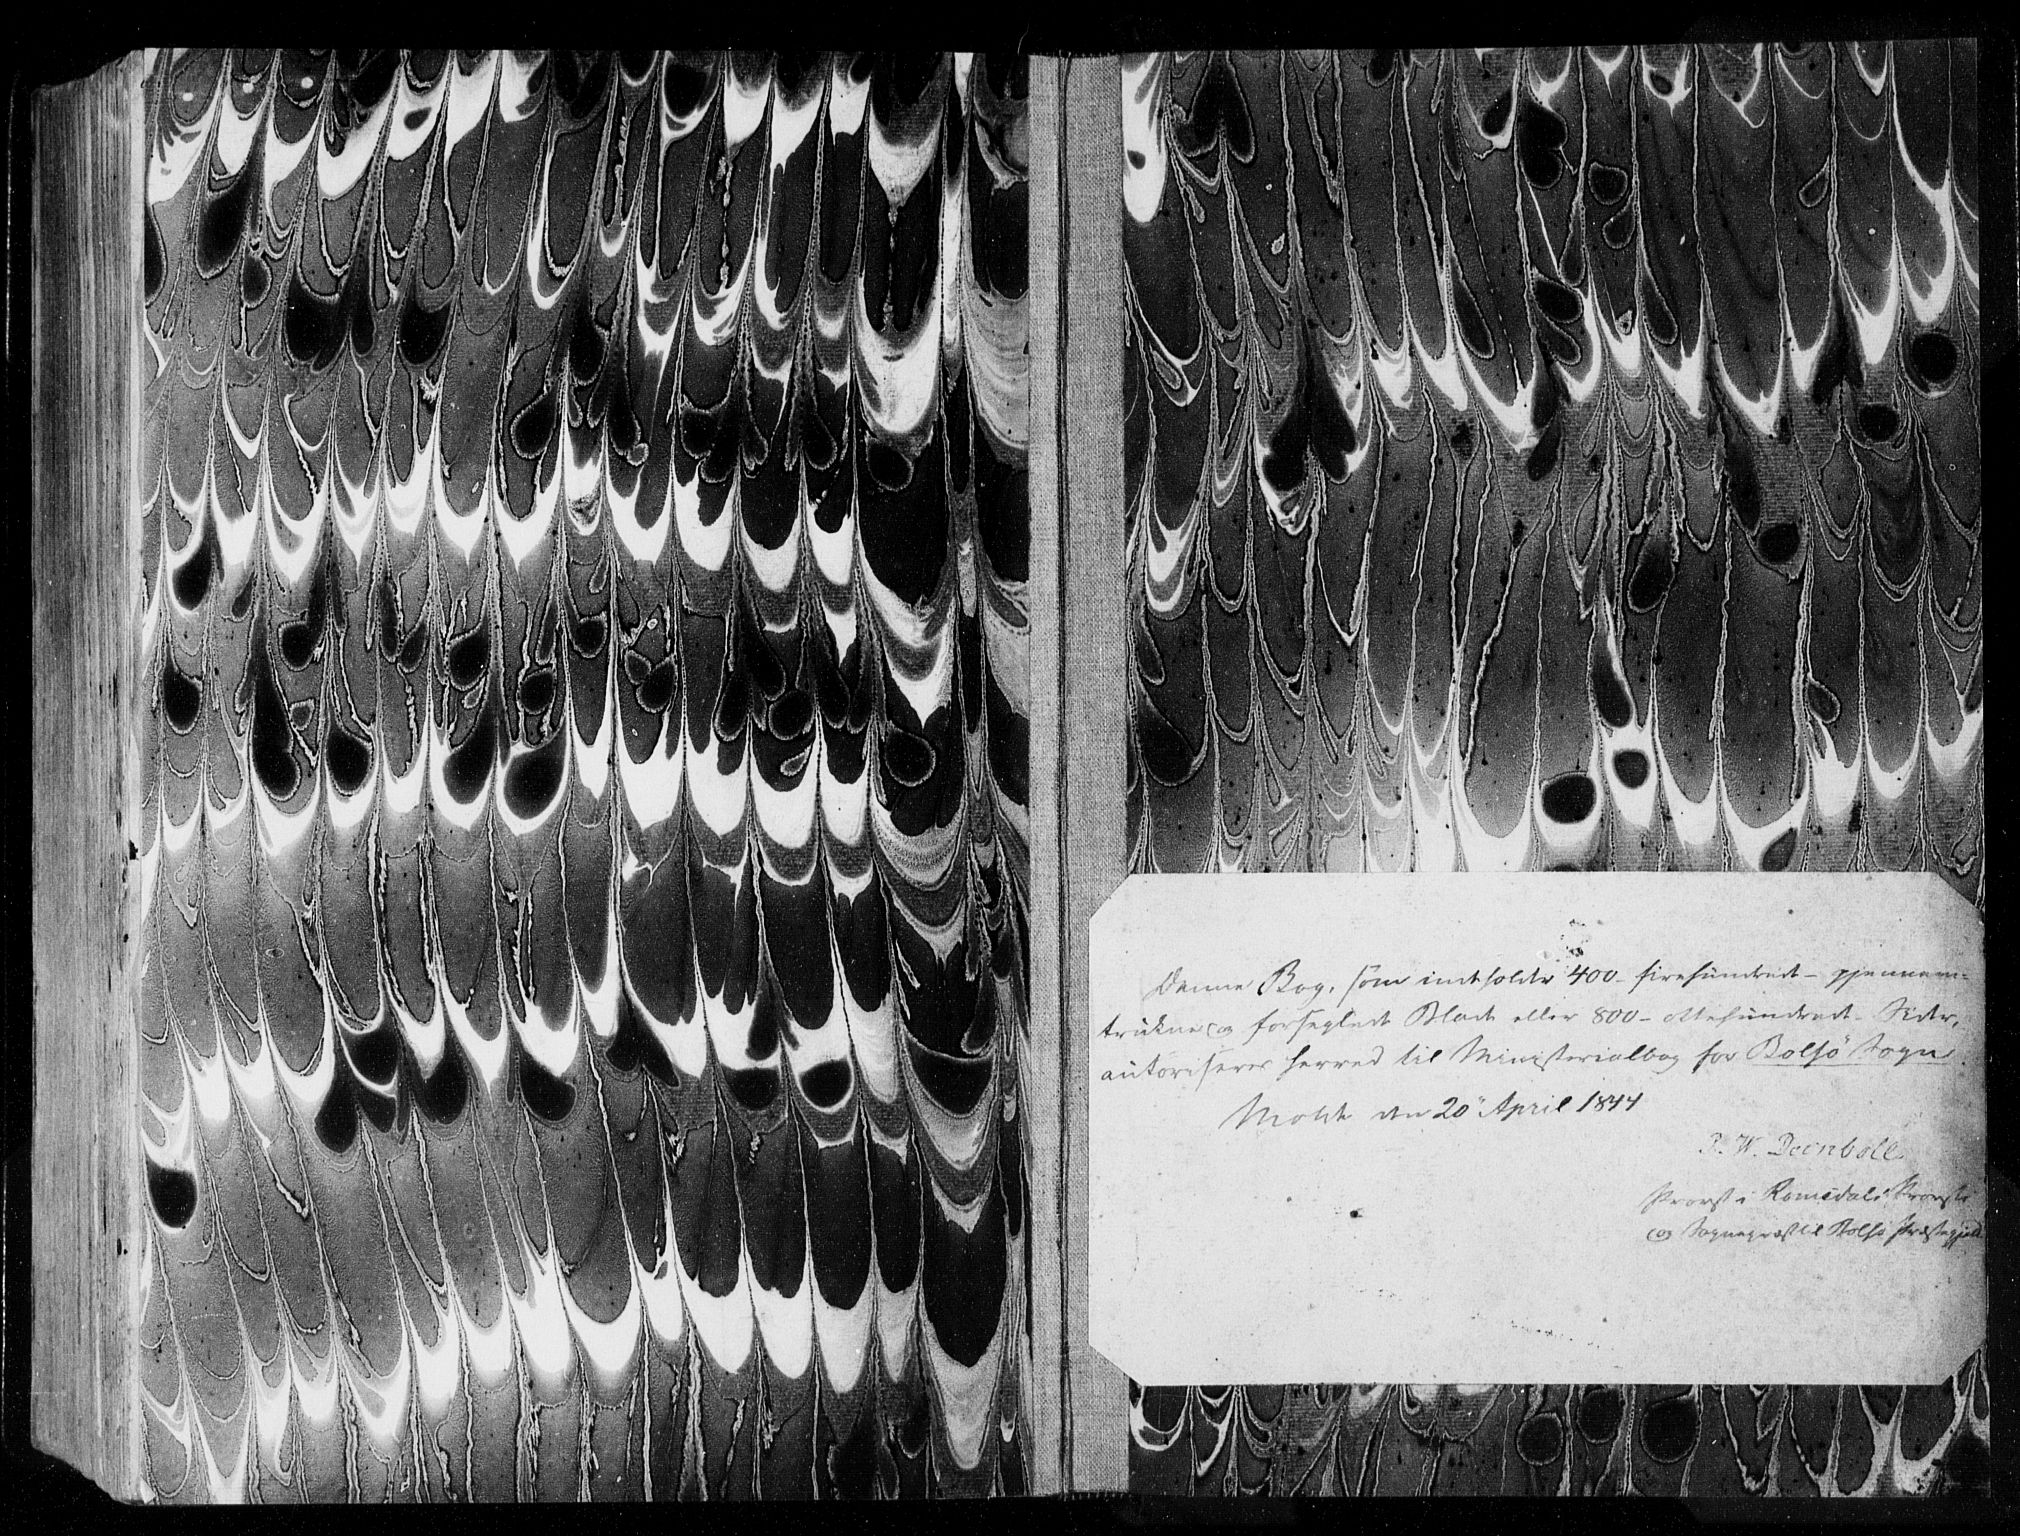 Denne Bog, som indeholder 400- firehundrede- gjennem-
trukne og forseglede Blade eller 800- ottehundrede- Sider,
autoriseres herved til Ministerialbog for Bolsø Sogn.
Molde den 20 April 1844
P. W. Deinboll
Provst i Romsdals Provsti
og Sognepræst til Bolsø Præstegjeld